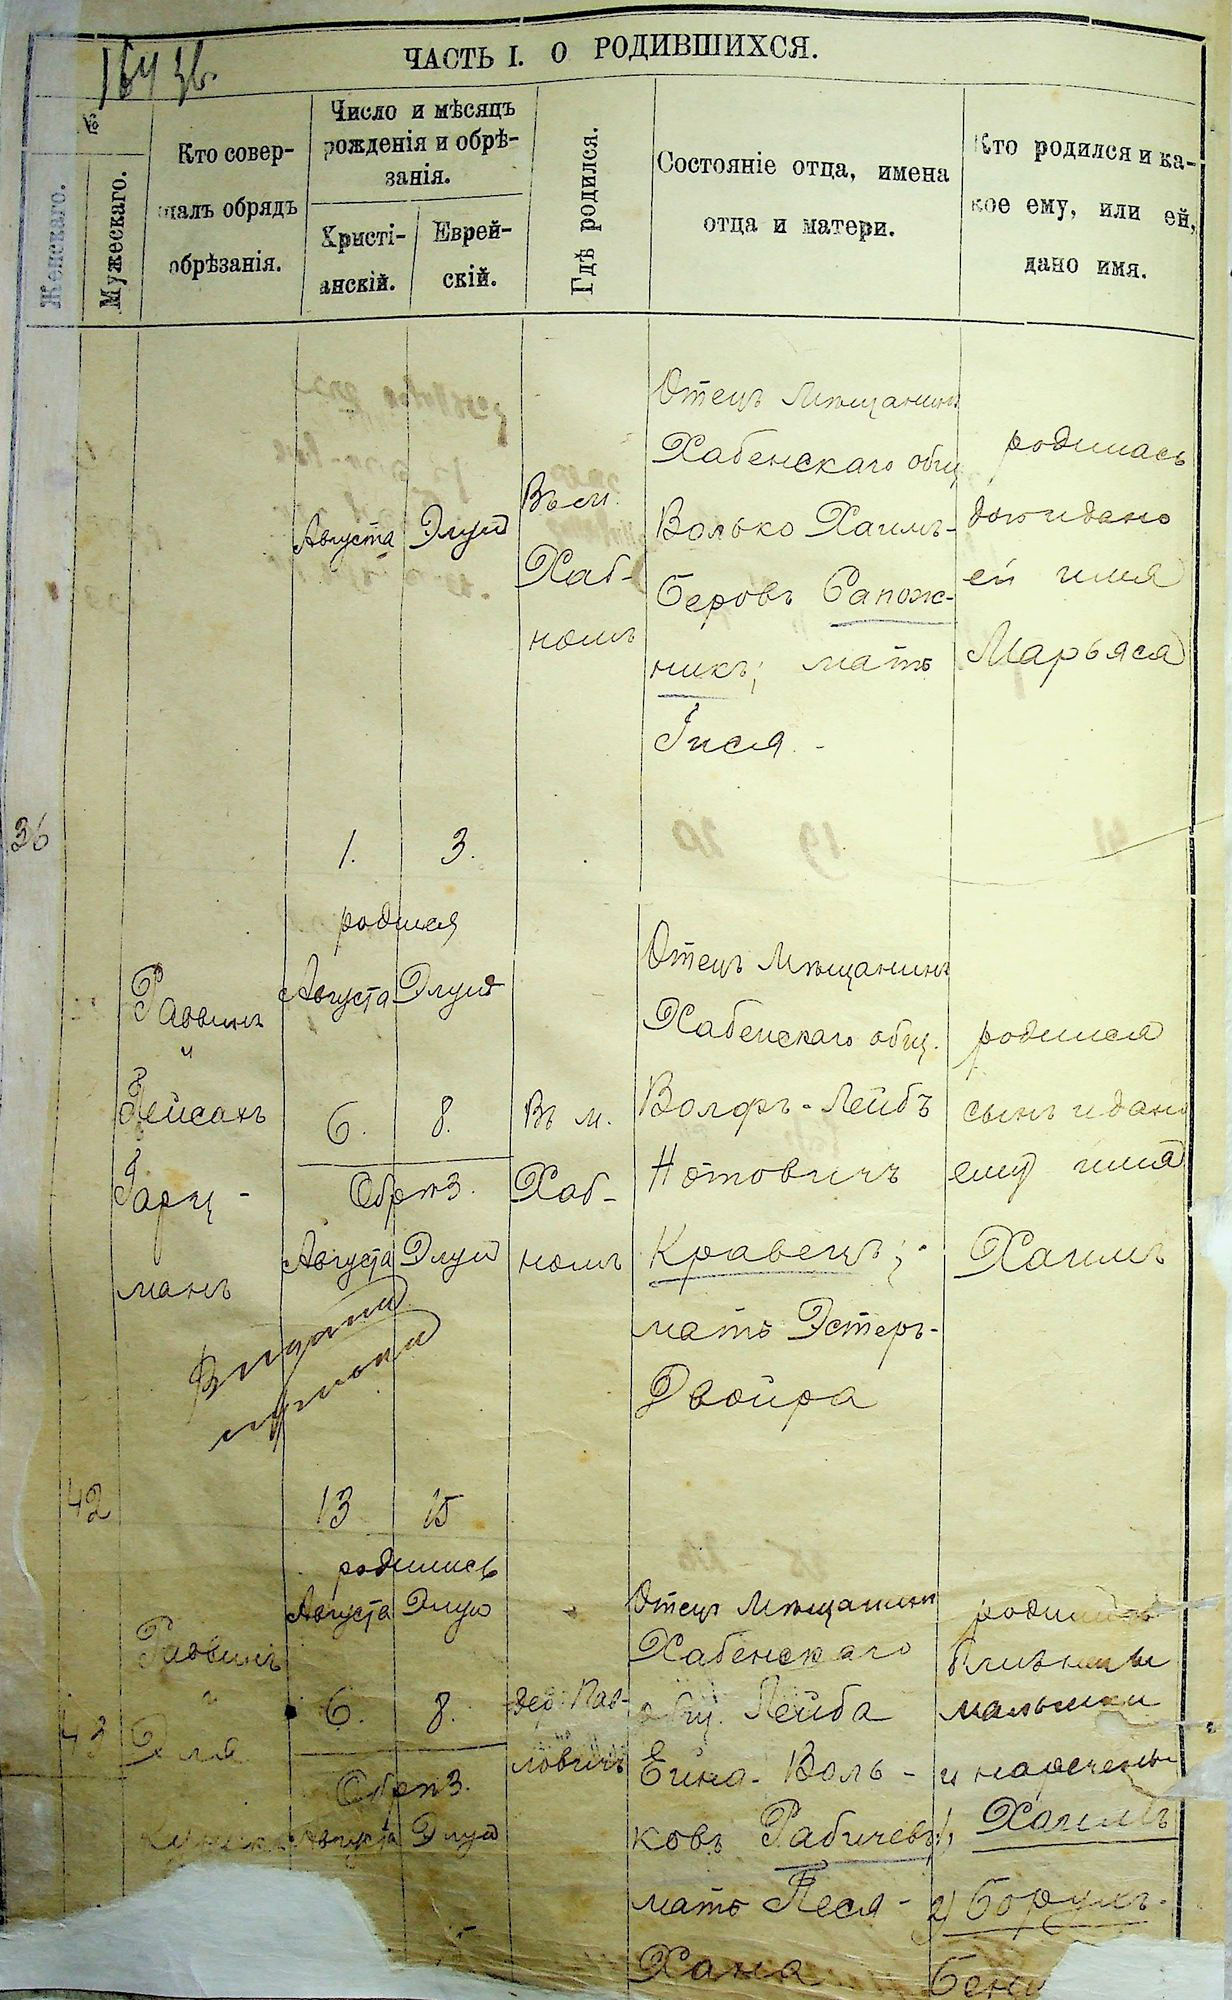 164 36.
ЧАСТЬ I. О РОДИВШИХСЯ.
№
Женскаго.
Мужескаго.
Кто совер-
шалъ обрядъ
обрѣзанія.
Число и мѣсяцъ
рожденія и обрѣ-
занія.
Христі-
анскій.
Еврей-
скій.
Гдѣ родился.
Состояніе отца, имена
отца и матери.
Кто родился и ка-
кое ему, или ей,
дано имя.
Августа
Элуля
Въ м.
Хаб-
номъ
Отецъ Мѣщанинъ
Хабенскаго общ
Волько Хаимъ-
Беровъ Сапож-
никъ; мать
Гися.
родилась
дочь и дано
ей имя
Марьяся
36
1. 3.
родился
Августа Элуля
6. 8.
Обрѣз.
Августа Элуля
13 15
Раввинъ
Пейсахъ
Гарц-
манъ
Въ м.
Хаб-
номъ
Отецъ Мѣщанинъ
Хабенскаго общ.
Волфъ-Лейбъ
Нотовичъ
Кравецъ;
мать Эстеръ-
Двойра
родился
сынъ и дано
ему имя
Хаимъ
42
родились
Августа Элуля
6. 8.
Обрѣз.
Августа Элуля
Раввинъ
Эля
43
дер. Пав-
ловичъ
Отецъ Мѣщанинъ
Хабенскаго
общ. Лейба
Ейна-Воль-
ковъ Рабичевъ
мать Песя-
Хана
родились
близнецы
мальчики
и наречены
1, Хаимъ
2) Борухъ-